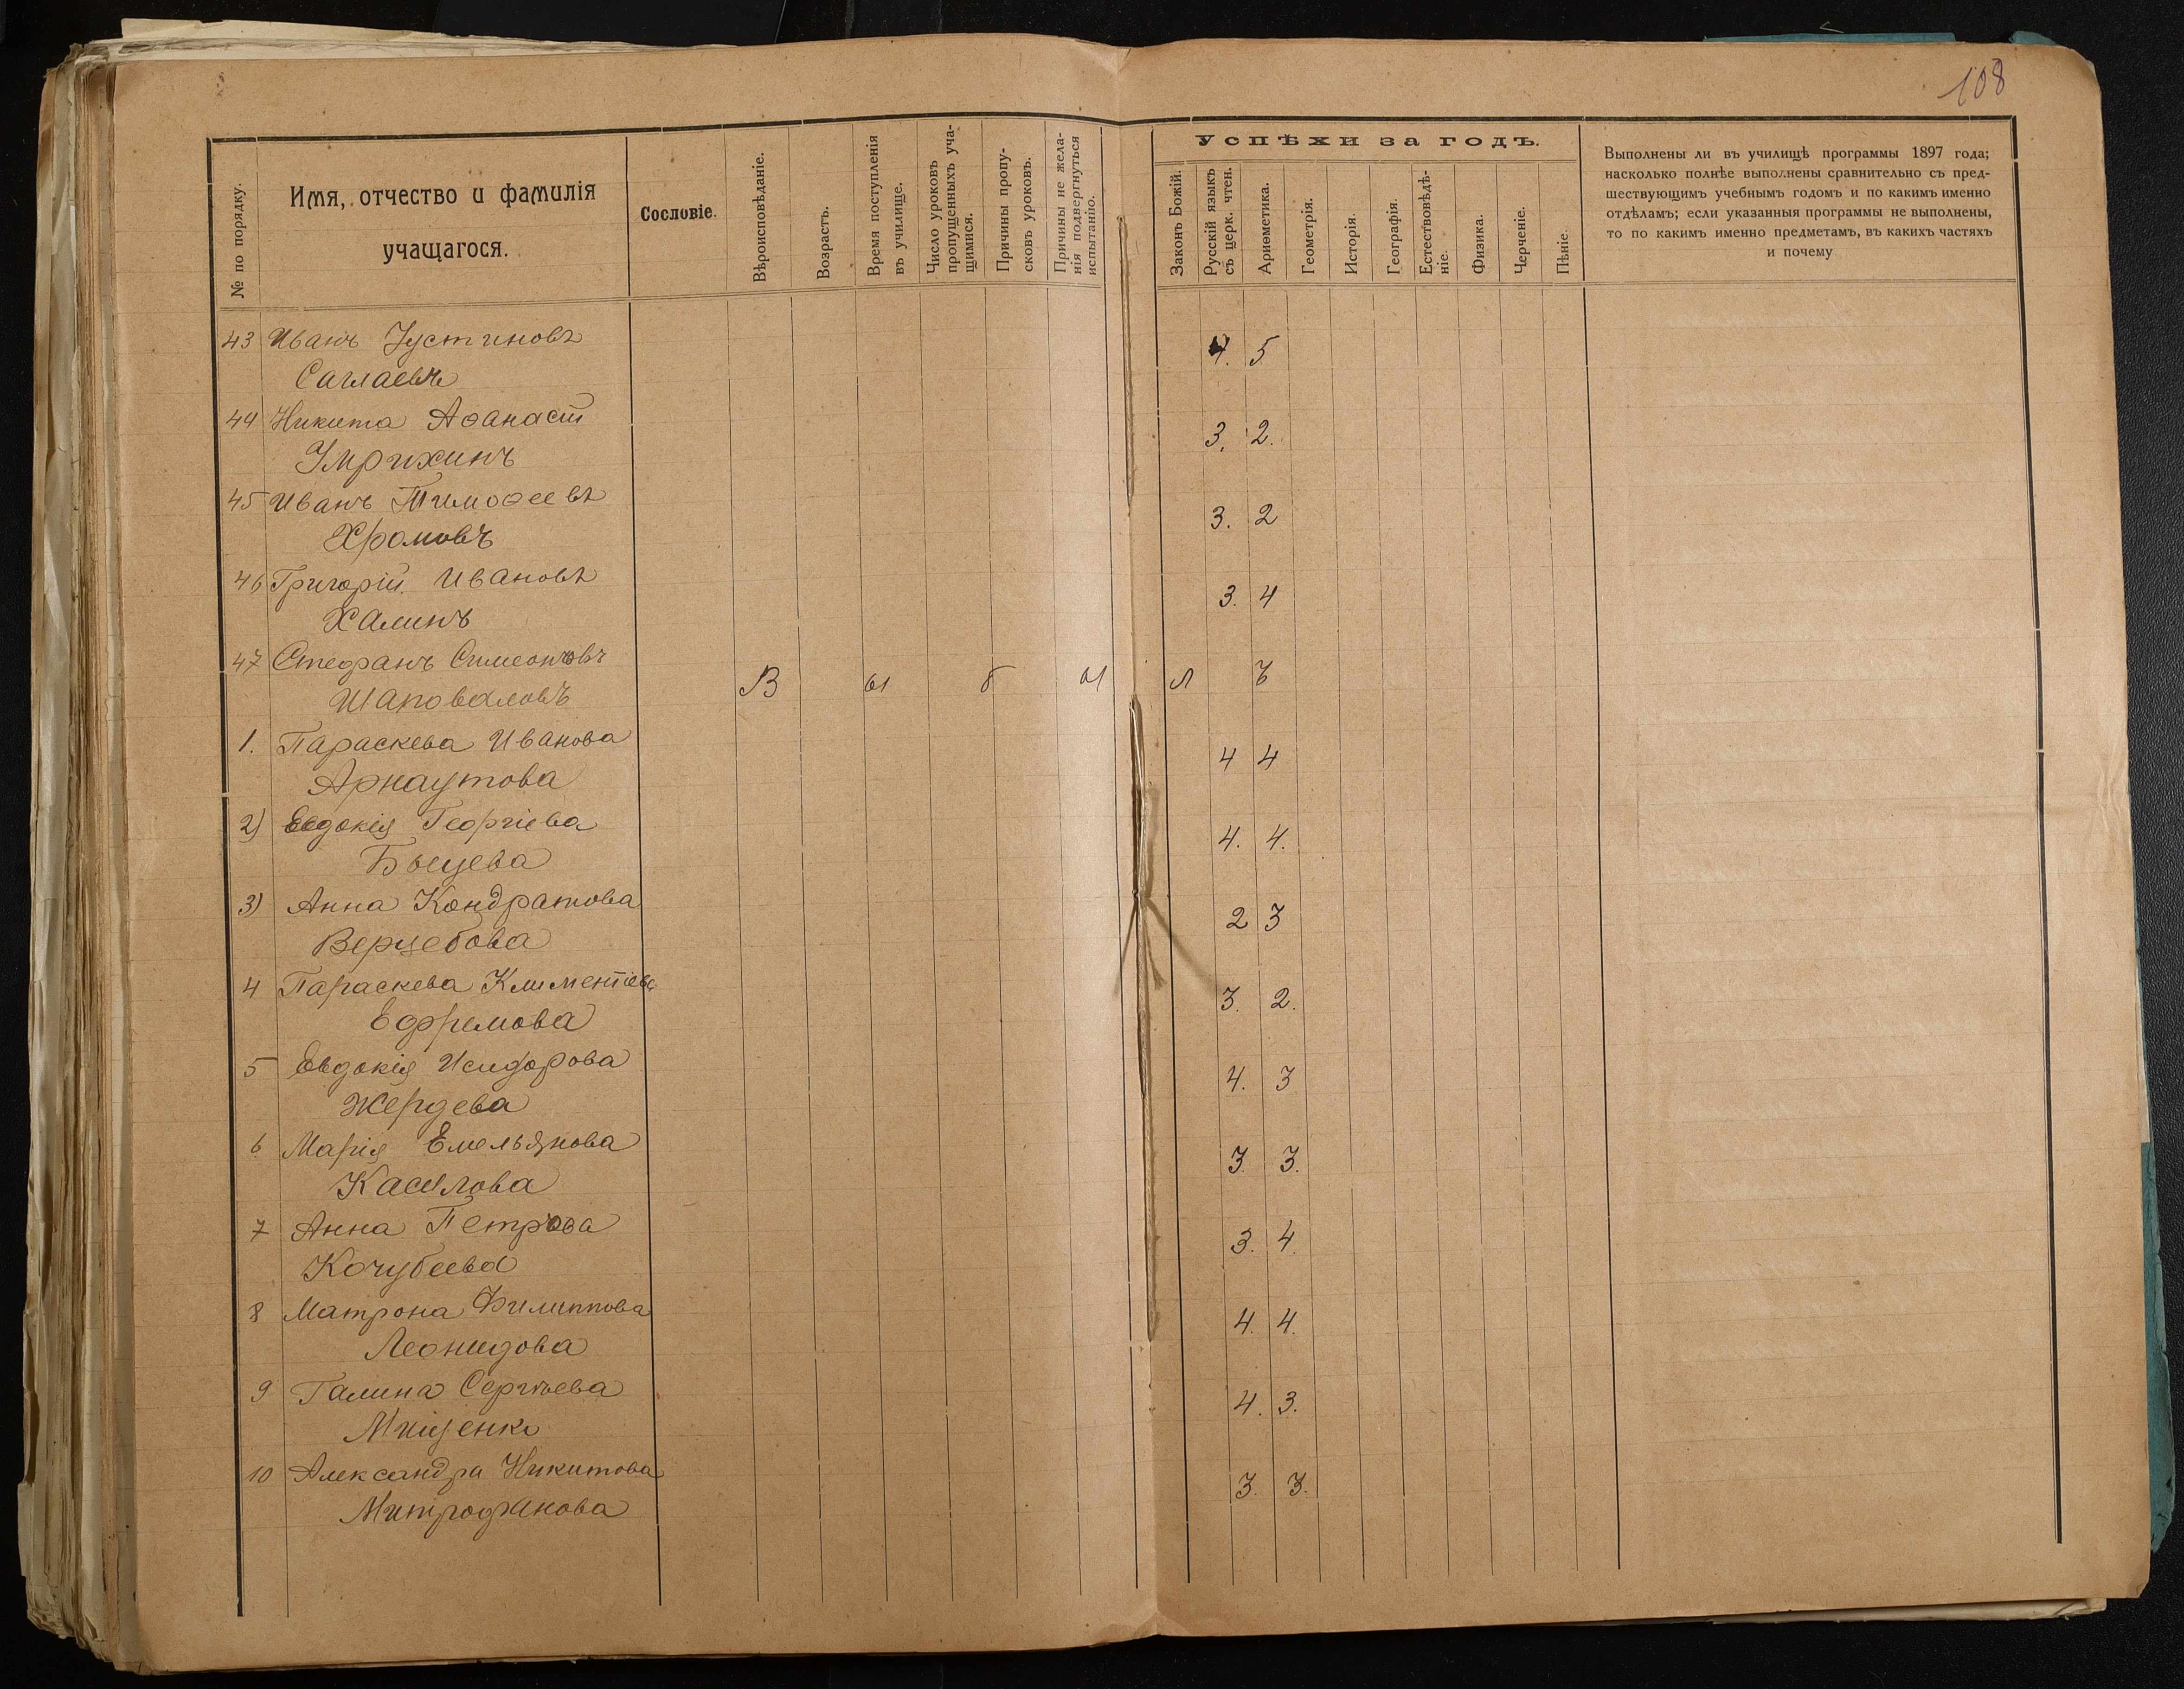 108
№ по порядку.
Имя, отчество и фамилія
учащагося.
Сословіе.
Вѣроисповѣданіе.
Возрастъ.
Время поступленія
въ училище.
Число уроковъ
пропущенныхъ уча-
щимися.
Причины пропу-
сковъ уроковъ.
Причины не жела-
нія подвергнуться
испытанію.
Успѣхи за годъ.
Законъ Божій.
Русскій языкъ
съ церк. чтен.
Ариѳметика.
Геометрія.
Исторія.
Географія.
Естествовѣдѣ-
ніе.
Физика.
Черченіе.
Пѣніе.
Выполнены ли въ училищѣ программы 1897 года;
насколько полнѣе выполнены сравнительно съ пред-
шествующимъ учебнымъ годомъ и по какимъ именно
отдѣламъ; если указанныя программы не выполнены,
то по какимъ именно предметамъ, въ какихъ частяхъ
и почему
43 Иванъ Іустиновъ 4. 5
44 Никита Аѳанасіи 3. 2.
Умрихинъ
45 Иванъ Тимоѳеевъ 3. 2
Хромовъ
46 Григорій Ивановъ 3. 4
Халинъ
47 Стефанъ Симеоновъ В ы б ы л ъ
Шаповаловъ
1. Параскева Иванова 4 4
Арнаутова
2) Евдокія Георгіева 4. 4.
3) Анна Кондратова 2 3
4 Параскева Климентіева 3. 2.
Ефремова
5 Евдокія Исидорова 4. 3
Жердева
6 Марія Емельянова 3. 3.
7 Анна Петрова 3. 4.
Кочубеева
8 Матрона Филиппова 4. 4.
Леонидова
9 Галина Сергѣева 4. 3.
Мищенко
10 Александра Никитова 3. 3.
Митрофанова